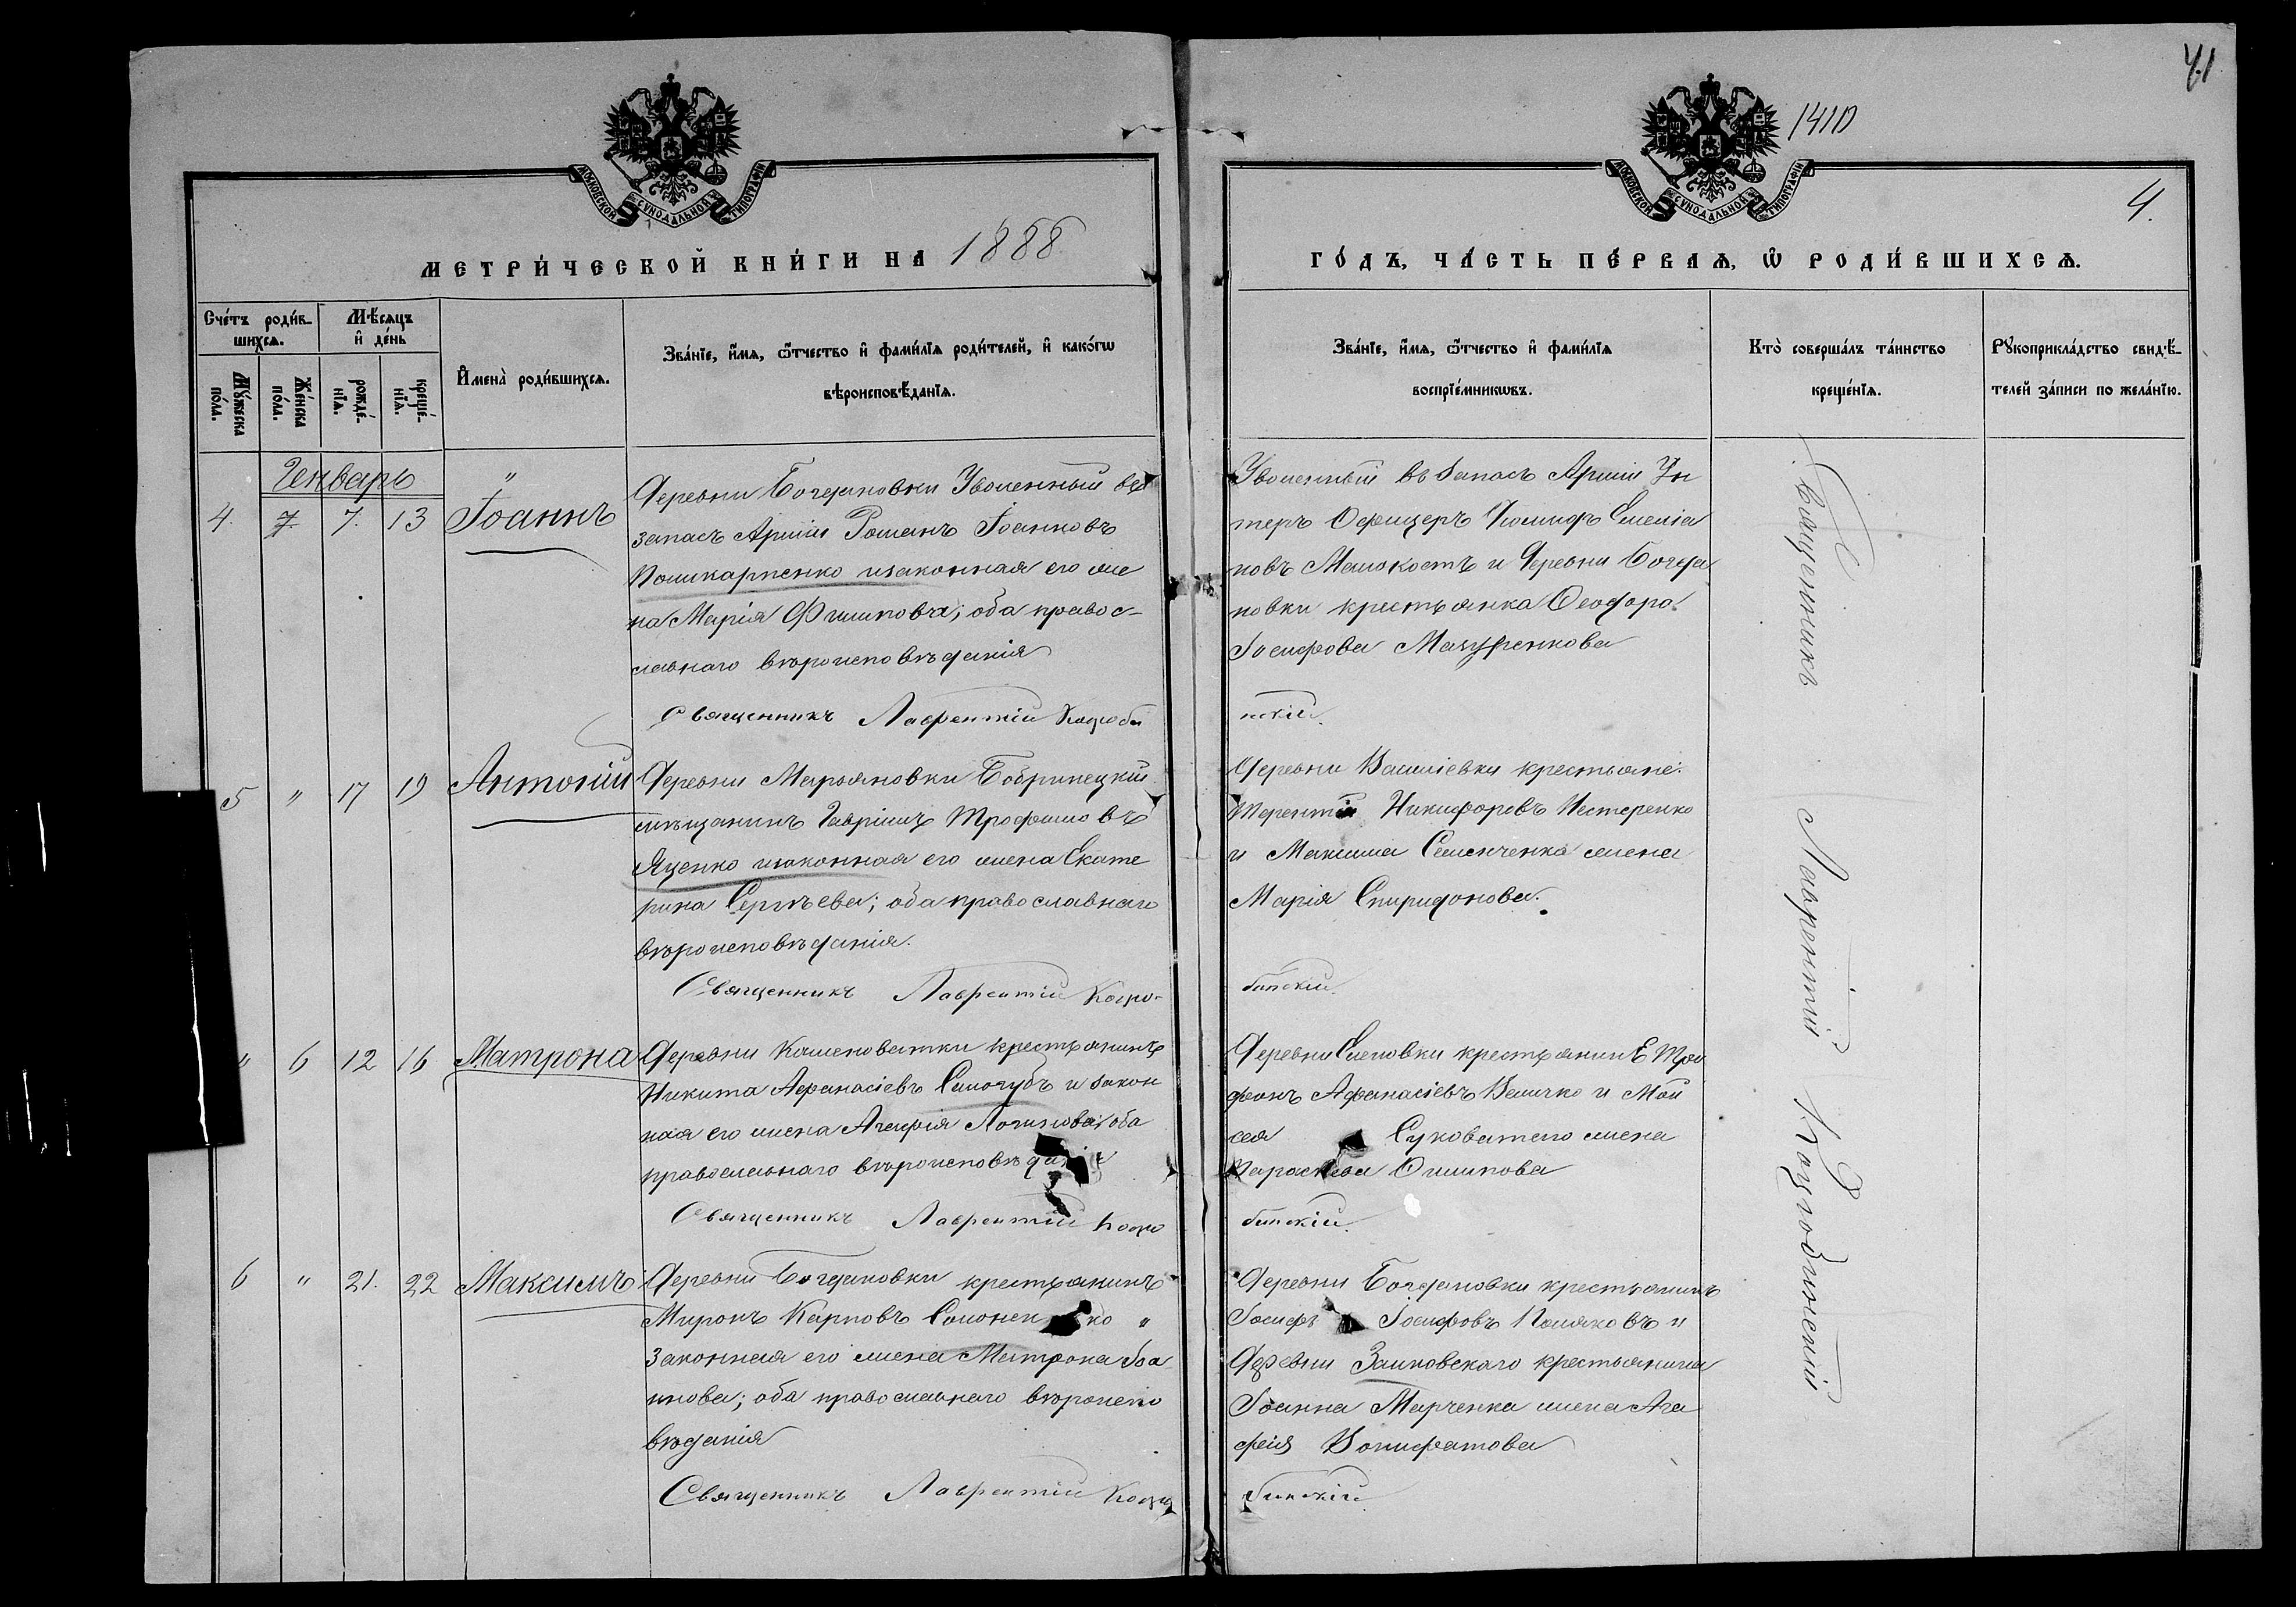 41
1410
4.
МОСКОВСКОЙ СѴНОДАЛЬНОЙ ТИПОГРАФІИ
МОСКОВСКОЙ СѴНОДАЛЬНОЙ ТИПОГРАФІИ
МЕТРИ́ЧЕСКОЙ КНИ́ГИ НА 1888
ГО́ДЪ, ЧА́СТЬ ПЕ́РВАѦ, Ѽ РОДИ́ВШИХСѦ.
Сче́тъ роди́в-
шихсѧ.
Мꙋ́жеска
по́ла.
Же́нска
по́ла.
Мѣ́сѧцъ
и҆ де́нь
рожде́-
нїѧ.
креще́-
нїѧ.
И҆мена̀ роди́вшихсѧ.
Зва́нїе, и҆́мѧ, ѻ҆́тчество и҆ фами́лїѧ роди́телей, и҆ како́гѡ
вѣроисповѣ́данїѧ.
Зва́нїе, и҆́мѧ, ѻ҆́тчество и҆ фами́лїѧ
воспрїе́мникѡвъ.
Кто̀ соверша́лъ та́инство
креще́нїѧ.
Рꙋкоприкла́дство свидѣ́-
телей за́писи по жела́нїю.
Генварь
4. 7. 7. 13 Іоаннъ
Деревни Богдановки Уволенный въ
запасъ Арміи Романъ Іоанновъ
Поликарпенко и законная его же
на Марія Филипова; оба правос-
лавнаго вѣроисповѣданія
Священникъ Лаврентій Козюби
Уволенный въ Запасъ Арміи Ун
теръ Офицеръ Іосифъ Емелiа
новъ Малокостъ и Деревни Богда
новки крестьянка Феодора
Іосифова Мазуренкова
нскій.
5 " 17 19 Антоній
Деревни Марьяновки Бобринецкій
мѣщанинъ Гавріилъ Трофимовъ
Яценко и законная его жена Екате
рина Сергѣева; оба православнаго
вѣроисповѣданія.
Священникъ Лаврентій Козю-
Деревни Василіевки крестьяне:
Терентій Никифоровъ Нестеренко
и Максима Семенченка жена
Марія Спиридонова.
бинскій.
" 6 12 16 Матрона
Деревни Каменоватки крестьянинъ
Никита Афанасіевъ Слюгубъ и закон
ная его жена Агафія Логинова; оба
православнаго вѣроисповѣданія
Священникъ Лаврентій Козю
Деревни крестьянинъ Три
фонъ Афанасіевъ Величко и Мой
сея Суковатаго жена
Параскева Филипова
бинскій.
6 " 21. 22 Максимъ
Деревни Богдановки крестьянинъ
Миронъ Карповъ Соломенко "
Законная его жена Матрона Іоа
ннова; оба православнаго вѣроиспо
вѣданія
Священникъ Лаврентій Козю
Деревни Богдановки крестьянинъ
Іосифъ Іосифовъ Поляковъ и
Деревни Заиковскаго крестьянина
Іоанна Марченка жена Ага
фія Вонифатова
бинскій.
Священникъ Лаврентій Козюбинскій